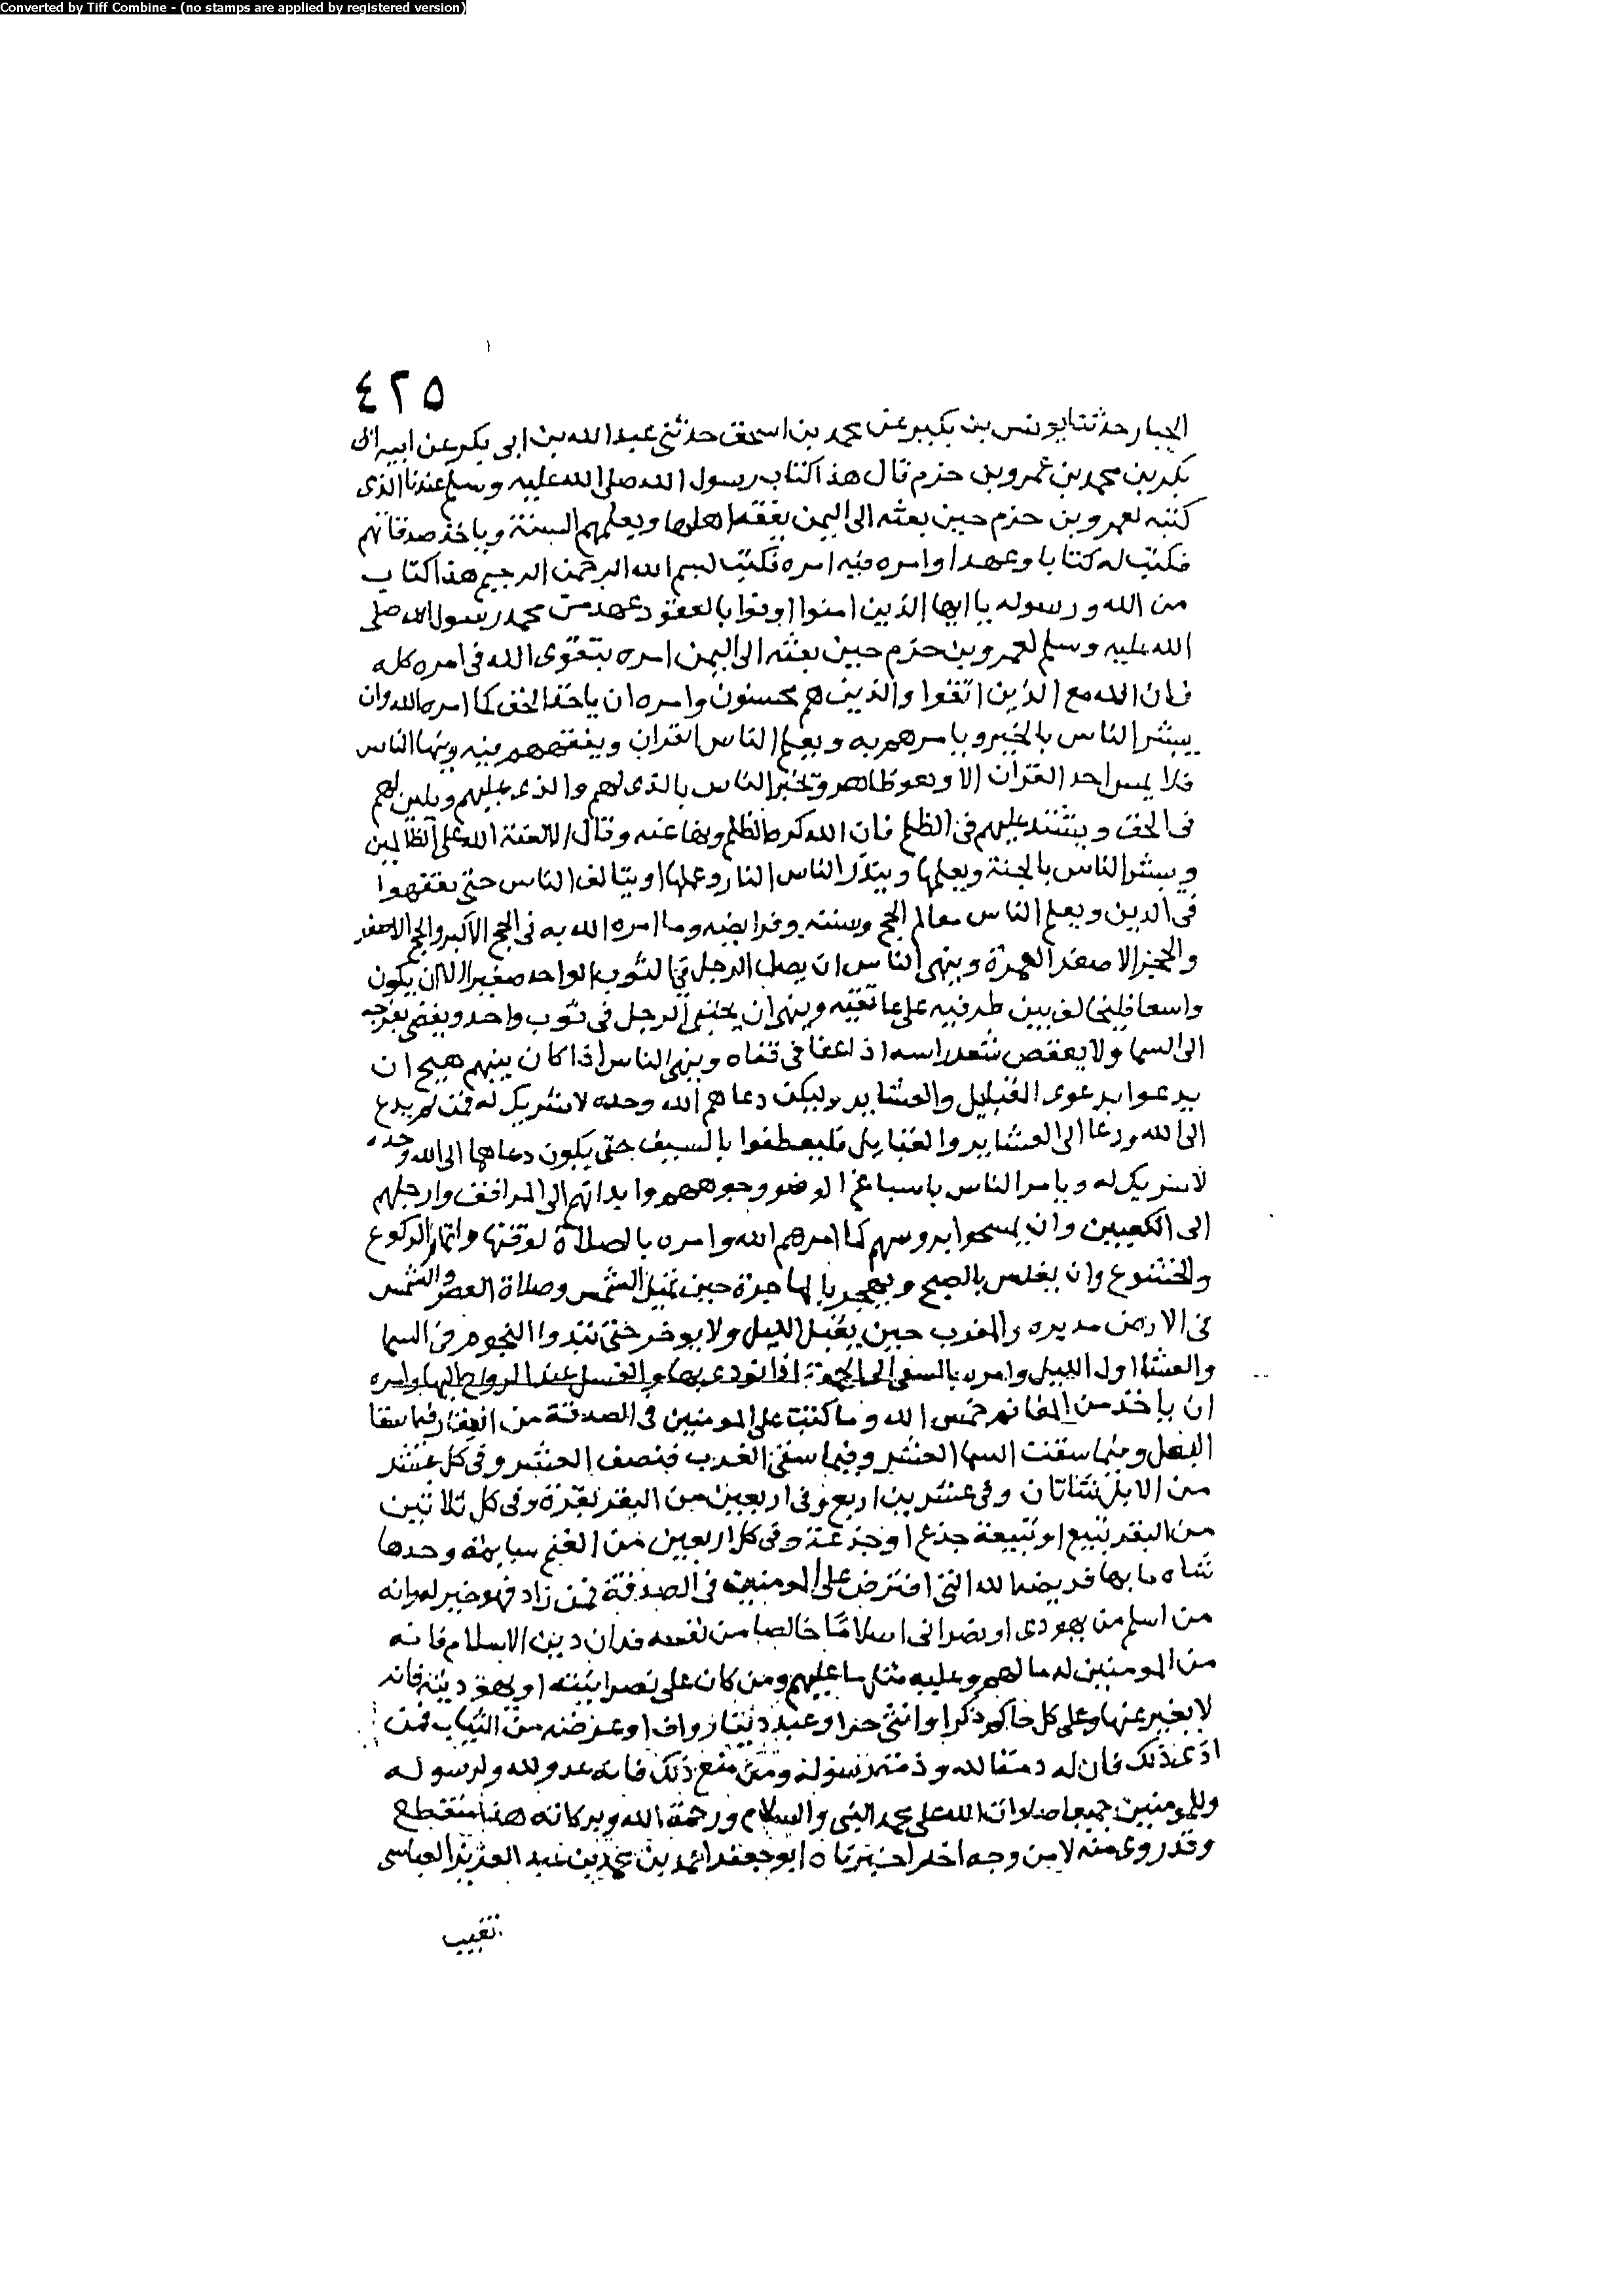 Converted by Tiff Combine - (no stamps are applied by registered version)
٤٢٥
الجبار حدثنا يونس بن بكير عن محمد بن اسحق حدثني عبد الله بن ابى بكر عن ابيه
بكر بن محمد بن عمرو بن حزم قال هذا كتاب رسول الله صلى الله عليه وسلم عندنا الذى
كتبه لعمرو بن حزم حين بعثه الى اليمن يفقه اهلها ويعلمهم السنة وياخذ صدقاتهم
فكتب له كتابا وعهدا وامره فيه امره فكتب بسم الله الرحمن الرحيم هذا كتاب
من الله ورسوله يا ايها الذين امنوا اوفوا بالعقود عهد من محمد رسول الله صلى
الله عليه وسلم لعمرو بن حزم حين بعثه الى اليمن امره بتقوى الله فى امره كله
فان الله مع الذين اتقوا والذين هم محسنون وامره ان ياخذ الحق كما امره الله وان
يبشر الناس بالخير ويامرهم به ويعلم الناس القران ويفقههم فيه وينها الناس
فلا يمس احد القران الا وهو طاهر ويخبر الناس بالذى لهم والذى عليهم ويلين لهم
فى الحق ويشتد عليهم فى الظلم فان الله كره الظلم ونها عنه وقال الا لعنة الله على الظالمين
ويبشر الناس بالجنة وبعملها وينذر الناس النار وعملها ويتالف الناس حتى يفقهوا
فى الدين ويعلم الناس معالم الحج وسننه وفرايضه وما امره الله به فى الحج الاكبر والحج الاصغر
والحج الاصغر العمرة وينهى الناس ان يصلى الرجل فى الثوب الواحد صغيرا الا ان يكون
واسعا فليخالف بين طرفيه على عاتقيه وينهى ان يحتبى الرجل فى ثوب واحد ويفضى بفرجه
الى السما ولا يعقص شعر راسه اذا عفا فى قفاه وينهى الناس اذا كان بينهم هيج ان
يدعوا بدعوى القبايل والعشاير وليكن دعاهم الله وحده لا شريك له فمن لم يدع
الى الله ودعا الى العشاير والقبايل فليعطفوا بالسيف حتى يكون دعاهم الى الله وحده
لا شريك له ويامر الناس باسباغ الوضو وجوههم وايديهم الى المرافق وارجلهم
الى الكعبين وان يمسحوا بروسهم كما امرهم الله وامره بالصلاة لوقتها واتمام الركوع
والخشوع وان يغلس بالصبح ويهجر بالهاجرة حين تميل الشمس وصلاة العصر والشمس
فى الارض مدبره والمغرب حين يقبل الليل ولا يوخر حتى تبدوا النجوم فى السما
والعشا اول الليل وامره بالسعى الى الجمعة اذا نودى بها والغسل عند الرواح اليها وامره
ان ياخذ من المغانم خمس الله وما كتب على المومنين فى الصدقة من العقار فيما سقا
البعل وفيما سقت السما العشر وفيما سقى الغرب فنصف العشر وفى كل عشر
من الابل شاتان وفى عشرين اربع وفى اربعين من البقر بقرة وفى كل ثلاثين
من البقر تبيع او تبيعة جذع او جذعة وفى كل اربعين من الغنم سايمة وحدها
شاه فريضة الله التى افترض على المومنين فى الصدقة فمن زاد فهو خير له وانه
من اسلم من يهودى او نصرانى اسلاما خالصا من نفسه فدان دين الاسلام فانه
من المومنين له ما لهم وعليه مثل ما عليهم ومن كان على نصرانيته او يهوديته فانه
لا يغير عنها وعلى كل حالم ذكر او انثى حر او عبد دينار واف او عرضه من الثياب فمن
ادى ذلك فان له ذمة الله وذمة رسوله ومن منع ذلك فانه عدو لله ولرسوله
وللمومنين جميعا صلوات الله على محمد النبى والسلام ورحمة الله وبركاته هذا منقطع
وقد روى من وجه اخر اخبرناه ابو جعفر احمد بن محمد بن عبد العزيز العباسى